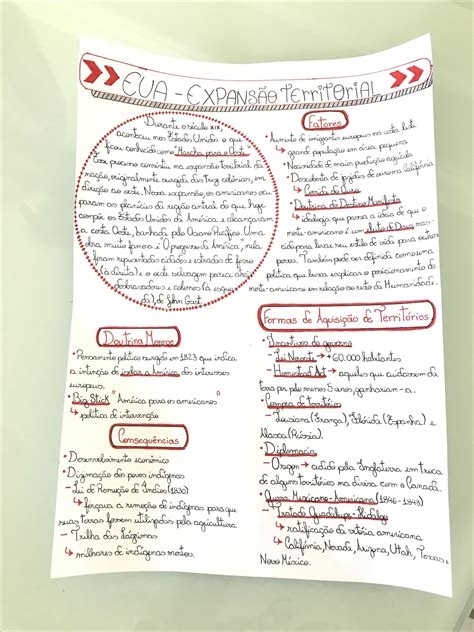 EUA - EXPANSÃO TERRITORIAL
Durante o século XIX,
aconteceu nos Estados Unidos o que
ficou conhecido como "Marcha para o Oeste".
Esse processo consistiu na expansão territorial da
nação, originalmente surgida das Treze colônias, em
direção ao oeste. Nessa expansão, os americanos ocu-
param as planícies da região central do que hoje
compõe os Estados Unidos da América e alcançaram
a costa Oeste, banhada pelo Oceano Pacífico. Uma
obra muito famosa é "O progresso da América", nela
foram representados cidades e estradas de ferro
(à direita) e o oeste selvagem para os
desbravadores e colonos (à esquer-
da), de John Gast.
Doutrina Monroe
• Pensamento político surgido em 1823 que indica
a intenção de isolar a América dos interesses
europeus.
• Big Stick "América para os americanos"
↳ política de intervenção
Consequências
• Desenvolvimento econômico
• Dizimação dos povos indígenas
- Lei de Remoção de Índios (1830)
↳ forçava a remoção de indígenas para que
suas terras fossem utilizadas pela agricultura.
- Trilha das Lágrimas
↳ milhares de indígenas mortos.
Fatores
• Aumento de imigrantes europeus na costa leste
↳ grande população em área pequena
• Necessidade de mais produção agrícola
• Descoberta de jazidas de ouro na Califórnia
↳ Corrida do Ouro
• Doutrina do Destino Manifesto
↳ ideologia que passa a ideia de que o
norte-americano é um eleito de Deus
para levar seu estilo de vida para outros
povos. Também pode ser definida como uma
política que busca explicar o posicionamento do
norte-americano em relação ao resto da Humanidade.
Formas de Aquisição de Territórios
• Incentivos do governo
- Lei Noroeste → +60.000 habitantes
- Homestead Act → aqueles que cuidassem da
terra por pelo menos 5 anos, ganhariam-a.
• Compra de territórios
- Louisiana (França), Flórida (Espanha) e
Alasca (Rússia).
• Diplomacia
- Oregon → cedido pela Inglaterra em troca
de alguns territórios na divisa com o Canadá.
• Guerra Mexicano-Americana (1846-1848)
- Tratado Guadalupe-Hidalgo
↳ ratificação da vitória americana
↳ Califórnia, Nevada, Arizona, Utah, Texas e
Novo México.